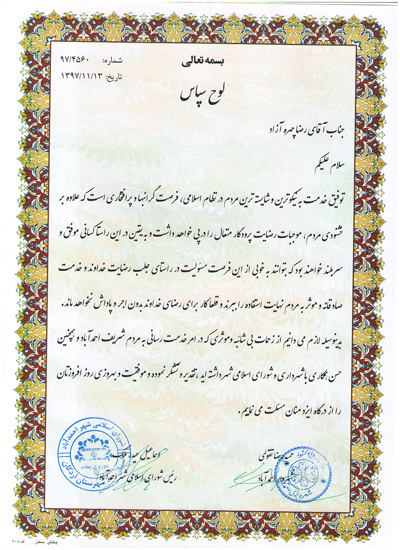 بسمه تعالی
شماره: ۹۷/۴۵۶۰
تاریخ: ۱۳۹۷/۱۱/۱۳
لوح سپاس
جناب آقای رضا چهره آزاد
سلام علیکم
توفیق خدمت به نیکوترین و شایسته ترین مردم در نظام اسلامی، فرصت گرانبها و پرافتخاری است که علاوه بر
خشنودی مردم، موجبات رضایت پروردگار متعال را در پی خواهد داشت و به یقین در این راستا کسانی موفق و
سربلند خواهند بود که بتوانند به خوبی از این فرصت مسئولیت در راستای جلب رضایت خداوند و خدمت
صادقانه و موثر به مردم نهایت استفاده را ببرند و قطعا کار برای رضای خداوند بدون اجر و پاداش نخواهد ماند.
بدینوسیله لازم می دانیم از زحمات بی شائبه و موثری که در امر خدمت رسانی به مردم شریف احمدآباد و همچنین
حسن همکاری با شهرداری و شورای اسلامی شهر داشته اید، تقدیر و تشکر نموده و موفقیت و بهروزی روز افزونتان
را از درگاه ایزد منان مسئلت می نمایم.
تقوی
اسماعیل
شهردار احمدآباد
رئیس شورای اسلامی شهر احمدآباد